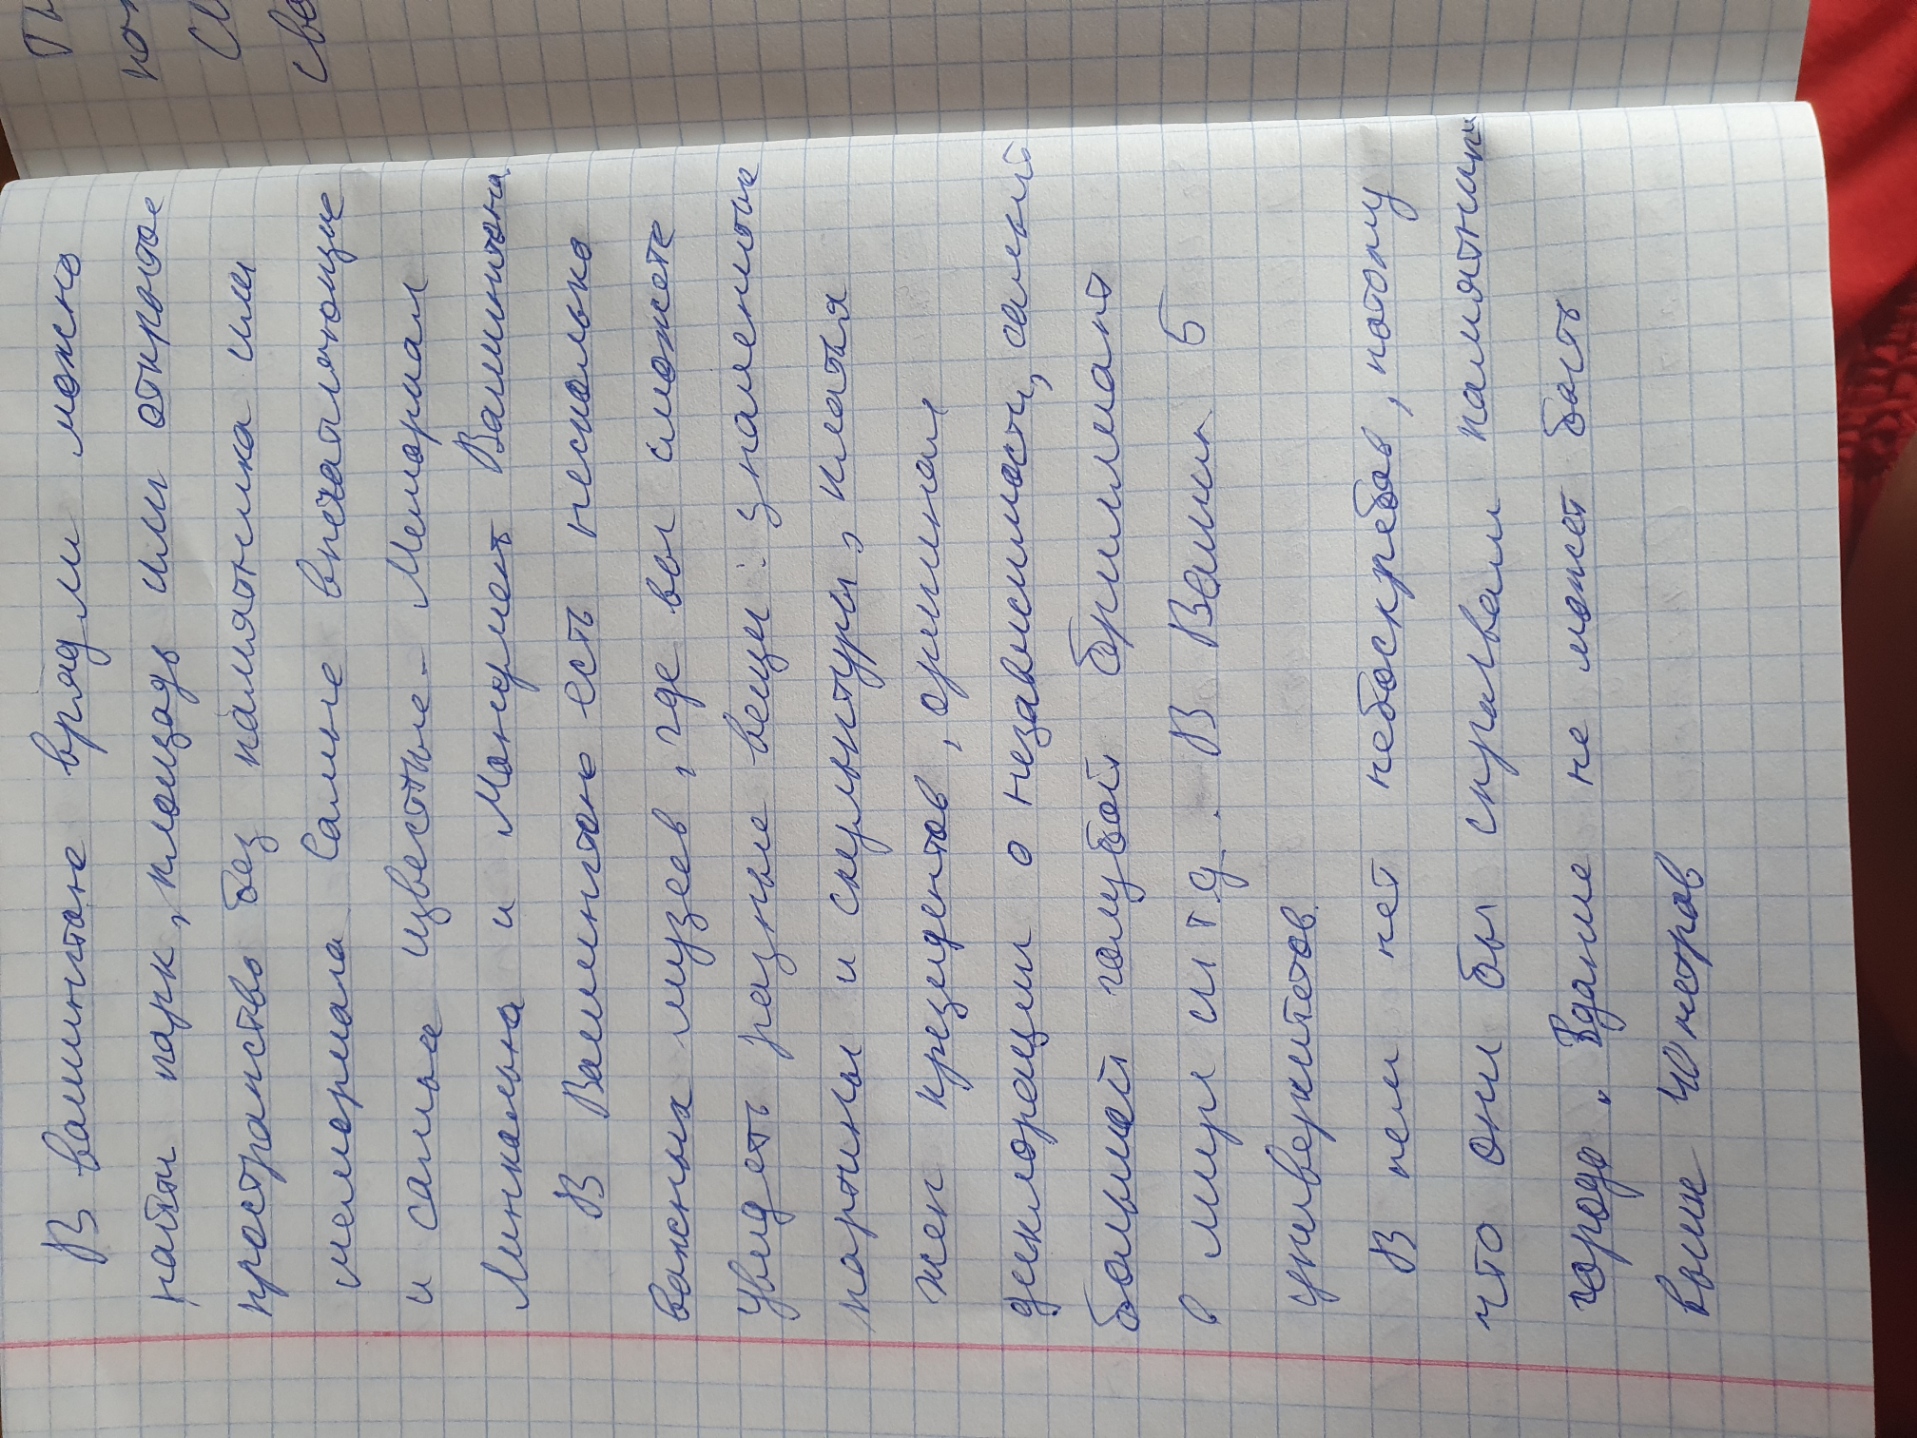 В вашингтоне врядли можно
найти парк, площадь или открытое
пространство без памятника или
мемориала. Самые впечатляющие
и самые известные - Мемориал
Линкольна и Монумент Вашингтона.
В Вашингтоне есть несколько
важных музеев, где вы сможете
увидеть разные вещи: знаменитые
картины и скульптуры, платья
жен президентов, оригинал
диклорации о независимости, самый
большой голубой бриллиант
в мире и т д. В Вашин 5
университетов.
В нем нет небоскребов, потому
что они бы скрывали памятники
города. Здание не может быть
выше 40 метров